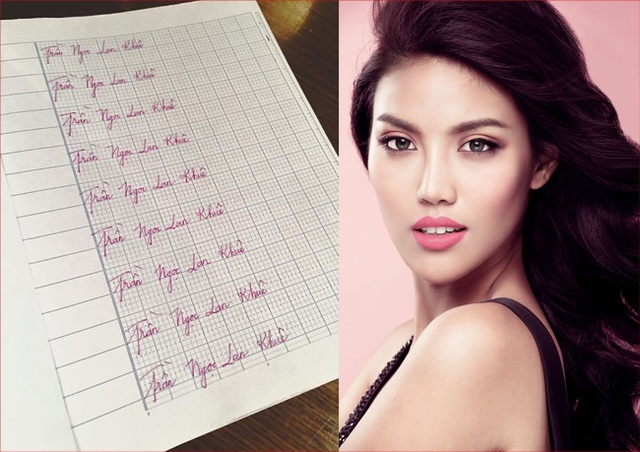 Trần Ngọc Lan Khuê
Trần Ngọc Lan Khuê
Trần Ngọc Lan Khuê
Trần Ngọc Lan Khuê
Trần Ngọc Lan Khuê
Trần Ngọc Lan Khuê
Trần Ngọc Lan Khuê
Trần Ngọc Lan Khuê
Trần Ngọc Lan Khuê